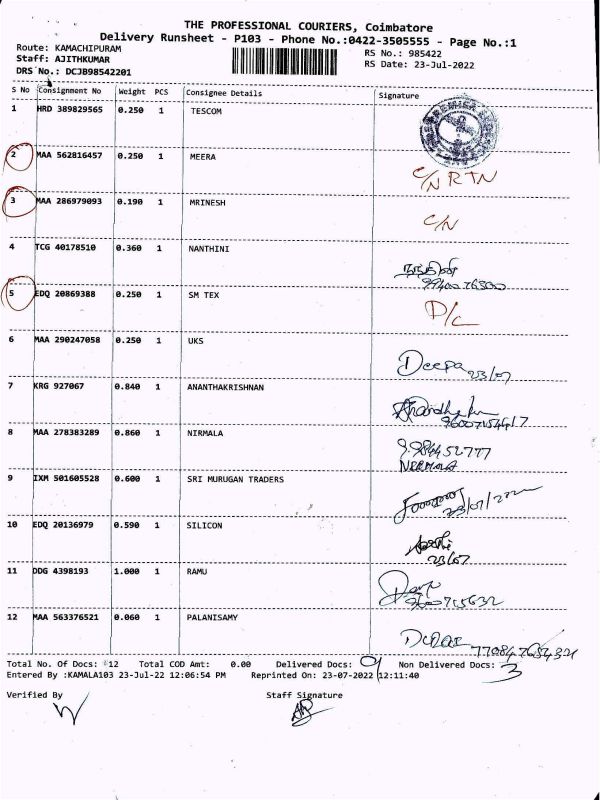 THE PROFESSIONAL COURIERS, Coimbatore
Delivery Runsheet - P103 - Phone No.:0422-3505555 - Page No.:1
Route: KAMACHIPURAM
RS No.: 985422
Staff: AJITHKUMAR
RS Date: 23-Jul-2022
DRS No.: DCJB98542201
S No Consignment No Weight PCS Consignee Details Signature
1 HRD 389829565 0.250 1 TESCOM
2 MAA 562816457 0.250 1 MEERA
C/N RTN
3 MAA 286979093 0.190 1 MRINESH
C/N
4 TCG 40178510 0.360 1 NANTHINI
5 EDQ 20869388 0.250 1 SM TEX
D/C
6 MAA 290247058 0.250 1 UKS
Deepa 23/07
7 KRG 927067 0.840 1 ANANTHAKRISHNAN
8 MAA 278383289 0.860 1 NIRMALA
NIRMALA
9 IXM 501605528 0.600 1 SRI MURUGAN TRADERS
23/07/2022
10 EDQ 20136979 0.590 1 SILICON
23/07
11 DDG 4398193 1.000 1 RAMU
12 MAA 563376521 0.060 1 PALANISAMY
Total No. Of Docs: 12 Total COD Amt: 0.00 Delivered Docs: 9 Non Delivered Docs: 3
Entered By :KAMALA103 23-Jul-22 12:06:54 PM Reprinted On: 23-07-2022 12:11:40
Verified By Staff Signature